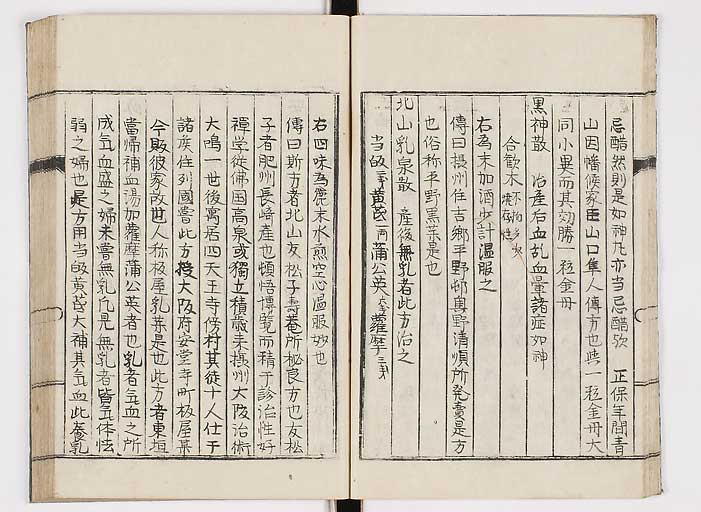 忌醋然則是如神丸亦当忌醋欤　正保年間青
山因幡候家臣山口隼人傳方也與一粒金丹大
同小異而其効勝一粒金丹
黒神散　治産后血乱血暈諸症如神
合歓木
右為末加酒少計温服之
傳曰摂州住吉郷平野邨奥野清順所発賣是方
也俗称平野黒薬是也
北山乳泉散　産後無乳者此方治之
当皈 黄芪 蒲公英 蘿摩
右四味為麁末水煎空心温服妙也
傳曰斯方者北山友松子壽菴所秘良方也友松
子者肥州長崎産也頓悟博覧而精于診治性好
禅学従佛国高泉或獨立積歳来摂州大阪治術
大鳴一世後寓居四天王寺傍村其徒十人仕于
諸矦住列國嘗此方授大阪府安堂寺町板屋某
今販彼家故世人称板屋乳薬是也此方者東垣
當帰補血湯加蘿摩蒲公英者也乳者気血之所
成気血盛之婦未嘗無乳凡見無乳者皆気体怯
弱之婦也是方用当皈黄芪大補其気血此